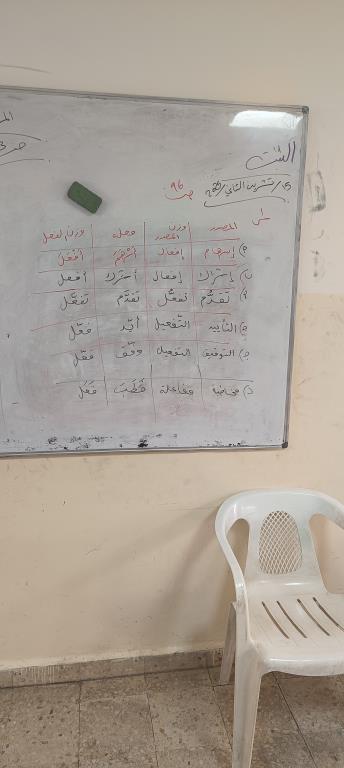 السبت
١٥/ تشرين الثاني/ ٢٠٢٥
ص ٩٦
المصدر وزن المصدر فعله وزن الفعل
إسهام إفعال أسْهَمَ أفْعَل
إشتراك إفعال أشترك أفعل
تَقَدُّم تفعُّل تَقَدَّم تَفَعَّل
التأييد التّفعيل أيّد فعّل
التوفيق التفعيل وفّق فعّل
مفاعلة فَعَل